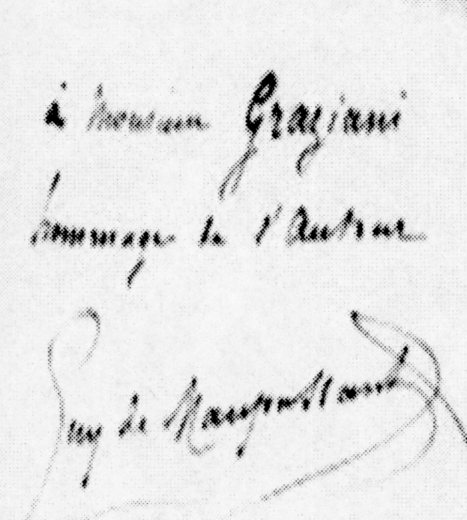 à Monsieur Graziani
hommage de l'Auteur
Guy de Maupassant